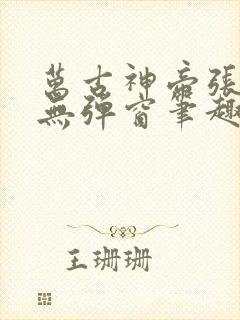 萬古神帝張
無彈窗筆趣
王珊珊